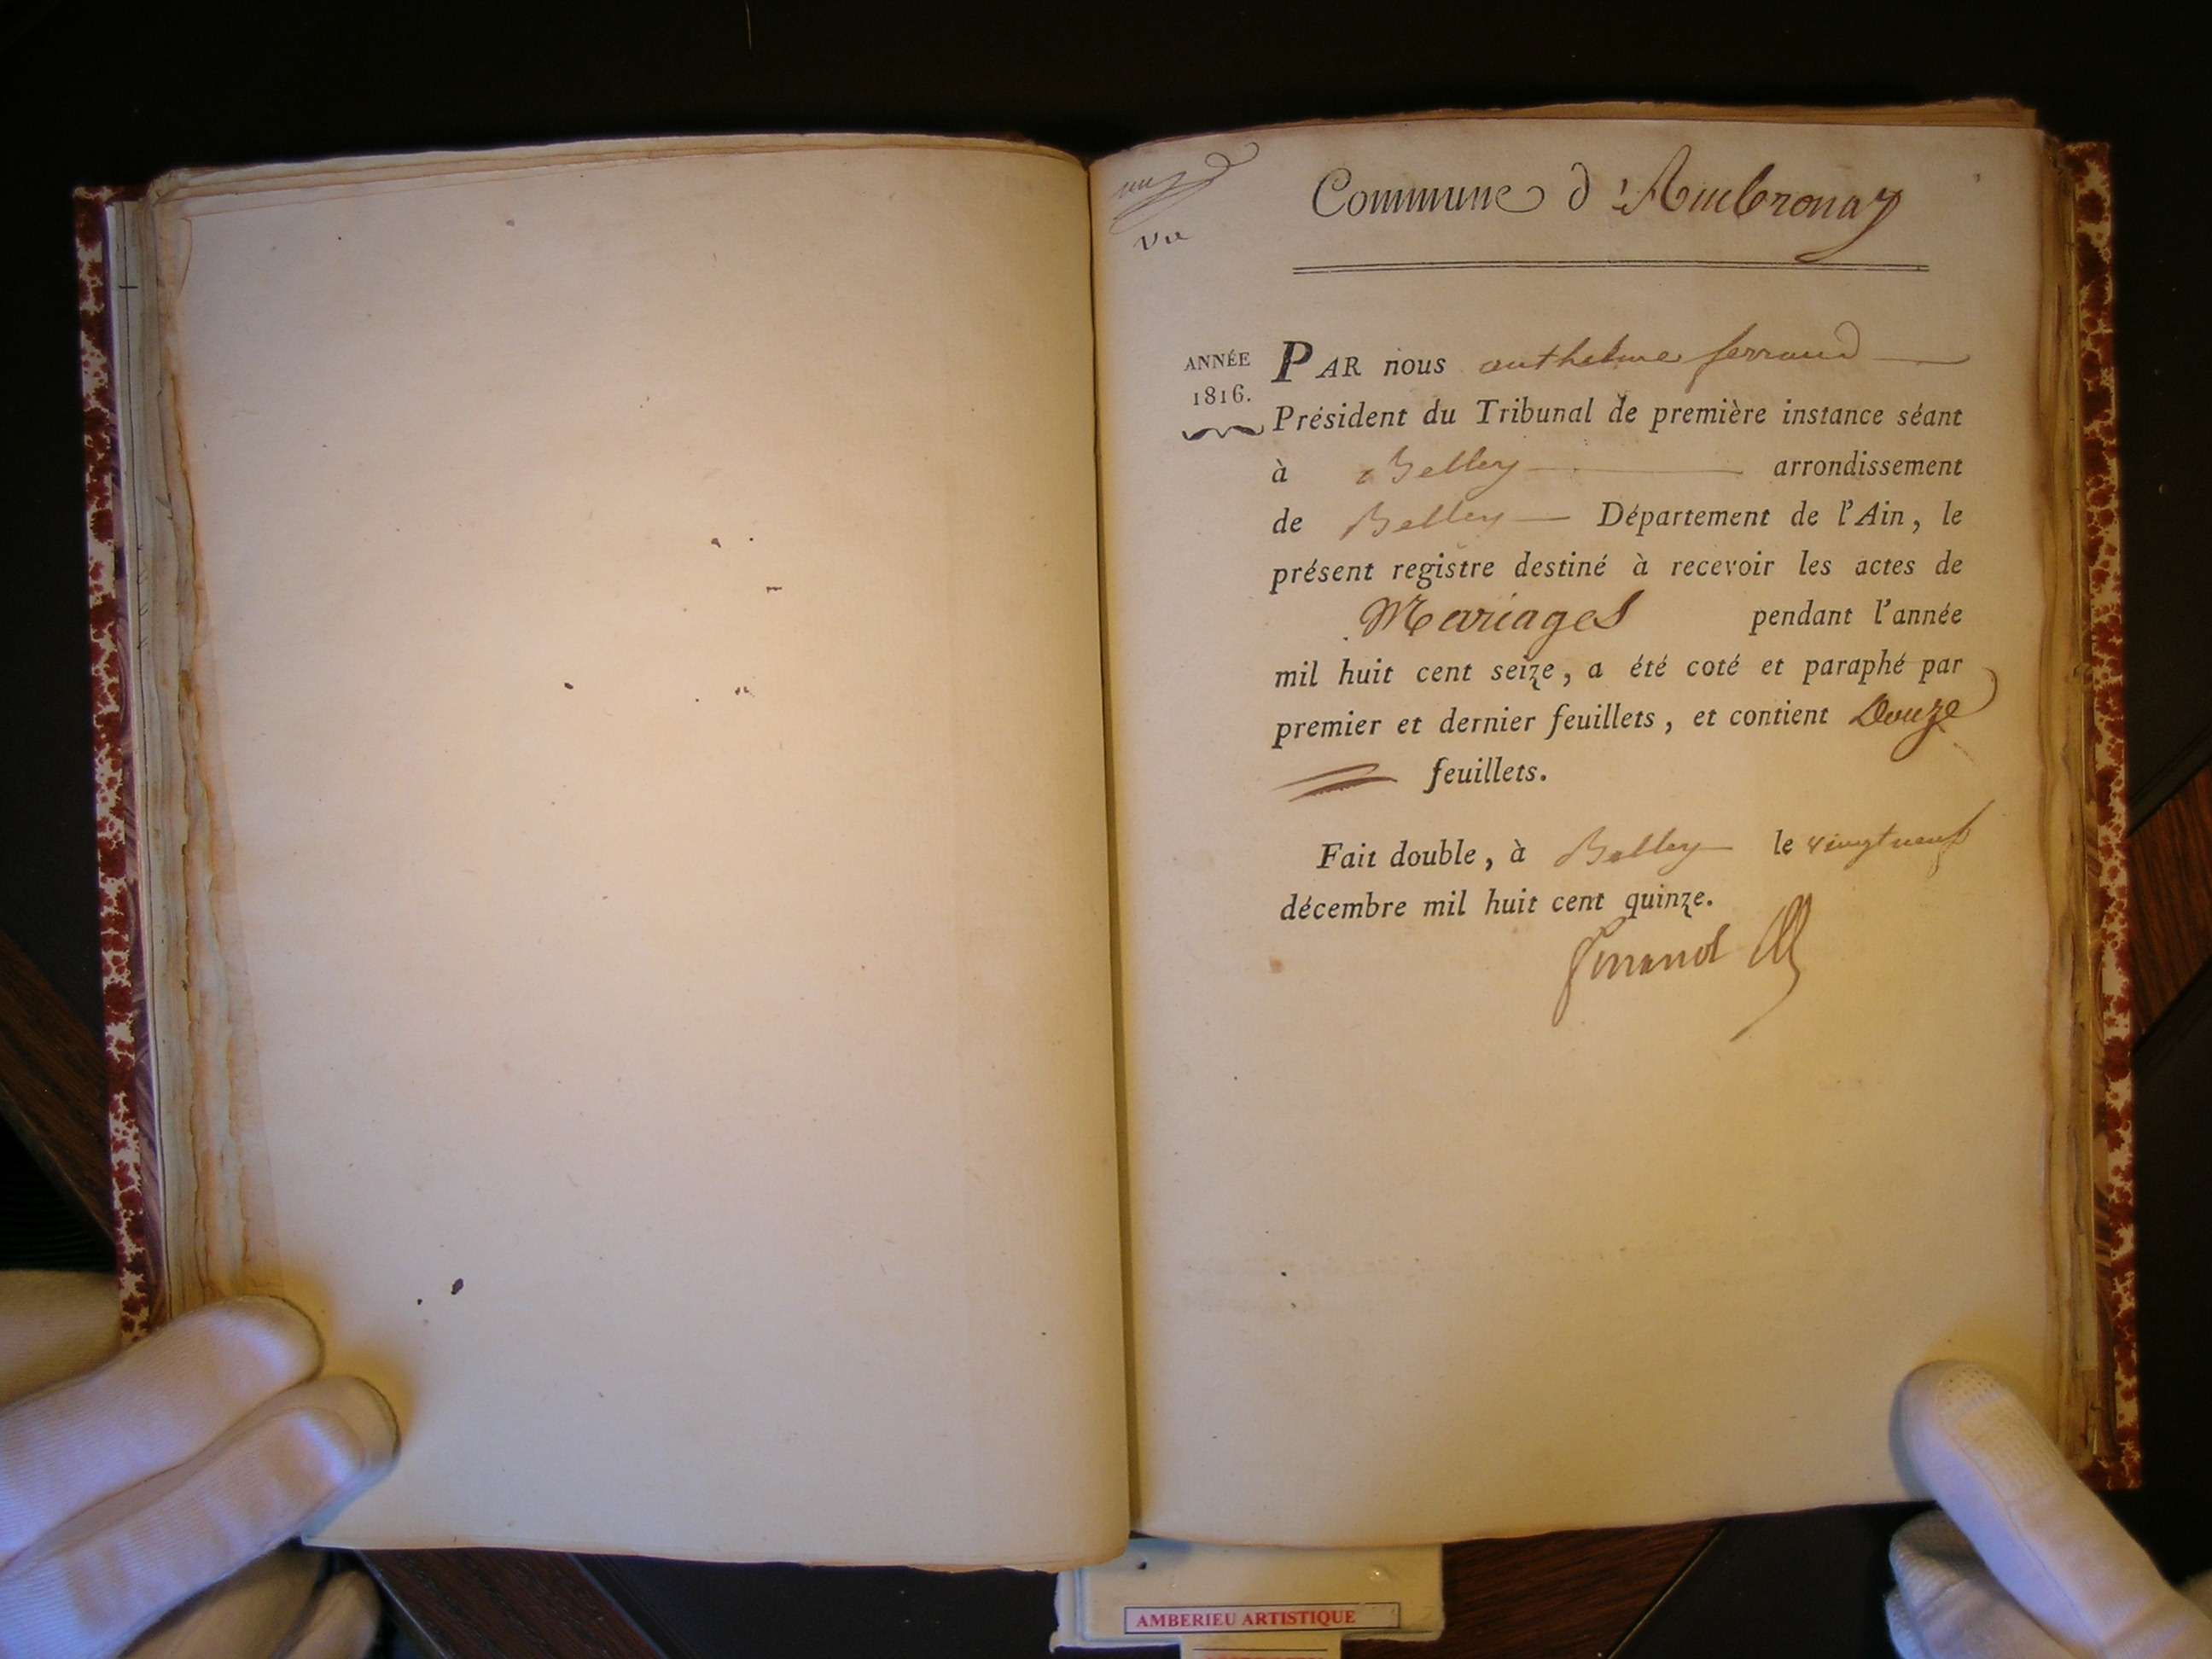 Commune d'Ambronay
ANNÉE
1816.
PAR nous anthelme ferrand
Président du Tribunal de première instance séant
à Belley arrondissement
de Belley Département de l'Ain, le
présent registre destiné à recevoir les actes de
Mariages pendant l'année
mil huit cent seize, a été coté et paraphé par
premier et dernier feuillets, et contient Douze
feuillets.
Fait double, à Belley le vingt neuf
décembre mil huit cent quinze.
ferrand
AMBERIEU ARTISTIQUE